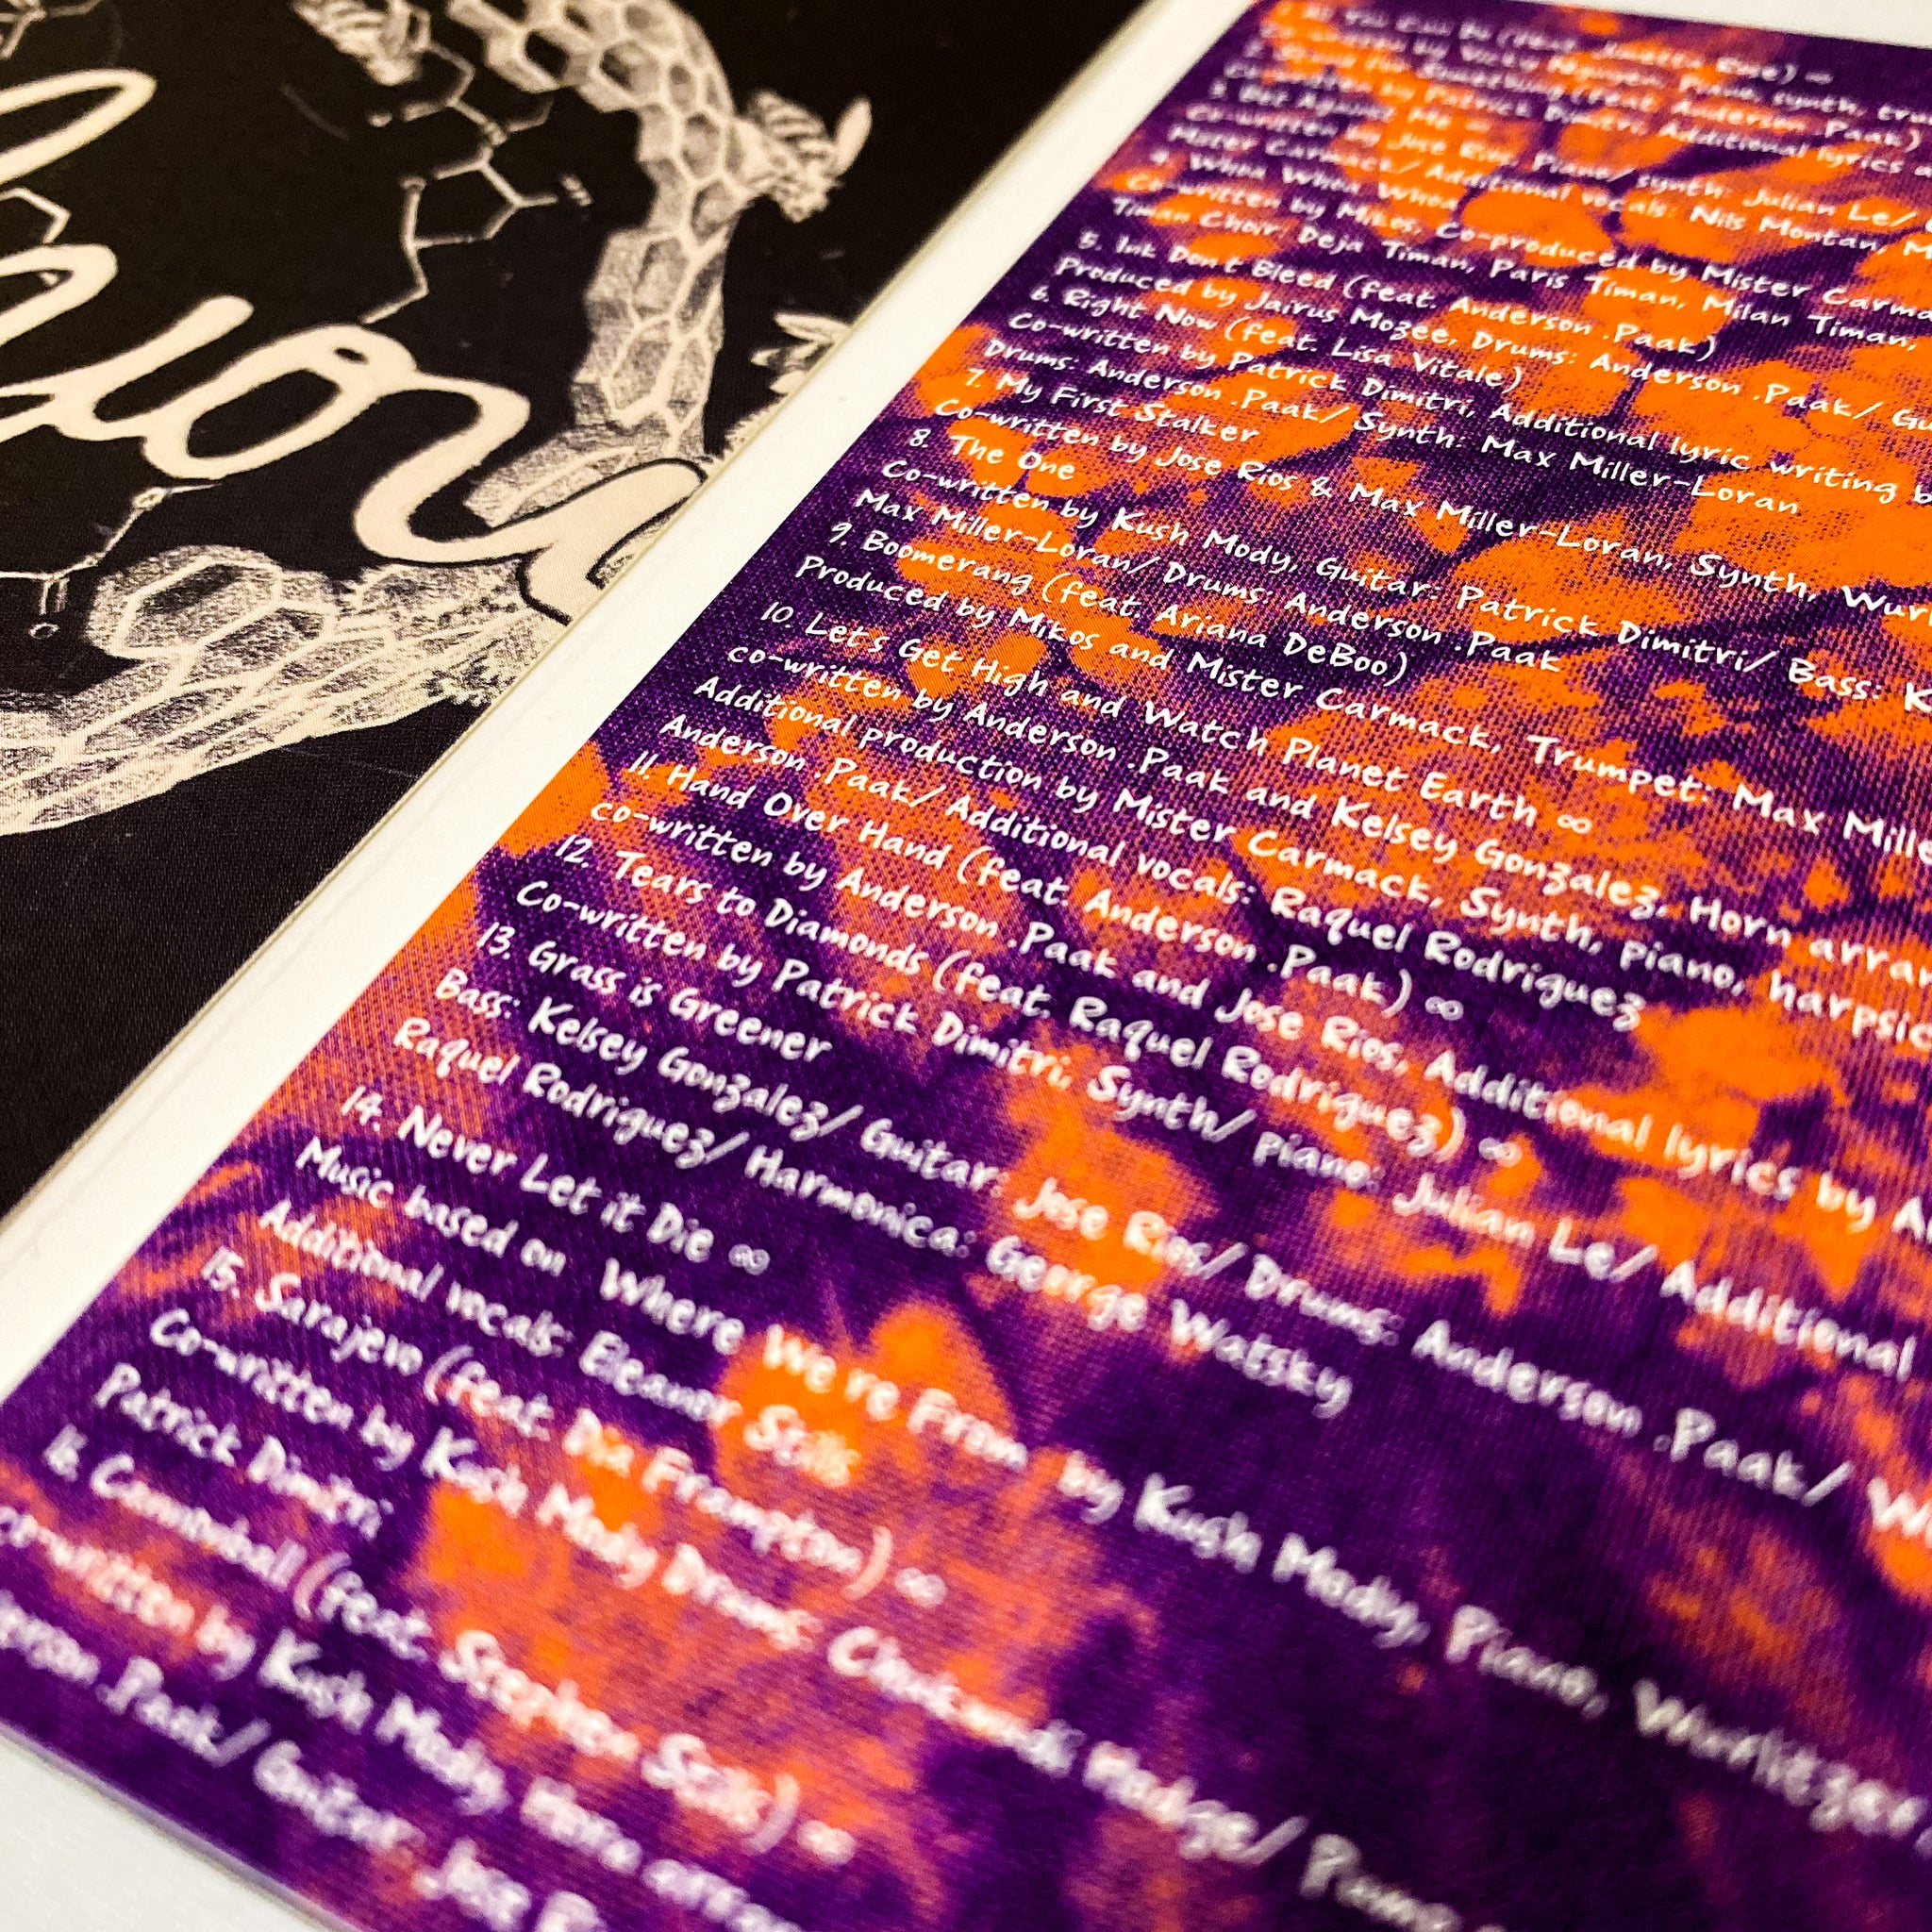 1. All You Can Do (feat.
Co-written by Piano, synth,
2. Stand For Something (feat. Anderson .Paak)
Co-written by Patrick Dimitri, Additional lyrics
3. Bet Against Me ∞
Co-written by Jose Rios, Piano/ synth: Julian Le/
Mister Carmack/ Additional vocals: Nils Montan,
4. Whoa Whoa Whoa
Co-written by Mikos, Co-produced by Mister Carma
Timan Choir: Deja Timan, Paris Timan, Milan Timan,
5. Ink Don't Bleed (feat. Anderson .Paak)
Produced by Jairus Mozee, Drums: Anderson .Paak/ Gu
6. Right Now (feat. Lisa Vitale)
Co-written by Patrick Dimitri, Additional lyric writing b
Drums: Anderson .Paak/ Synth: Max Miller-Loran
7. My First Stalker
Co-written by Jose Rios & Max Miller-Loran, Synth, Wurl
8. The One
Co-written by Kush Mody, Guitar: Patrick Dimitri/ Bass: K
Max Miller-Loran/ Drums: Anderson .Paak
9. Boomerang (feat. Ariana DeBoo)
Produced by Mikos and Mister Carmack, Trumpet: Max Mille
10. Let's Get High and Watch Planet Earth ∞
co-written by Anderson .Paak and Kelsey Gonzalez, Horn arran
Additional production by Mister Carmack, Synth, piano, harpsic
Anderson .Paak/ Additional vocals: Raquel Rodriguez
11. Hand Over Hand (feat. Anderson .Paak) ∞
co-written by Anderson .Paak and Jose Rios, Additional lyrics by A
12. Tears to Diamonds (feat. Raquel Rodriguez) ∞
Co-written by Patrick Dimitri, Synth/ piano: Julian Le/ Additional
13. Grass is Greener
Bass: Kelsey Gonzalez/ Guitar: Jose Rios/ Drums: Anderson .Paak/ W
Raquel Rodriguez/ Harmonica: George Watsky
14. Never Let it Die ∞
Music based on Where We're From by Kush Mody, Piano, Wurlitzer
Additional vocals: Eleanor Stills
15. Sarajevo (feat. Dia Frampton) ∞
Co-written by Kush Mody Drums: Chukwudi Hodge/
Patrick Dimitri
16. Cannonball (feat. Stephen Stills) ∞
co-written by Kush Mody,
erson .Paak/ Guitar: Jose